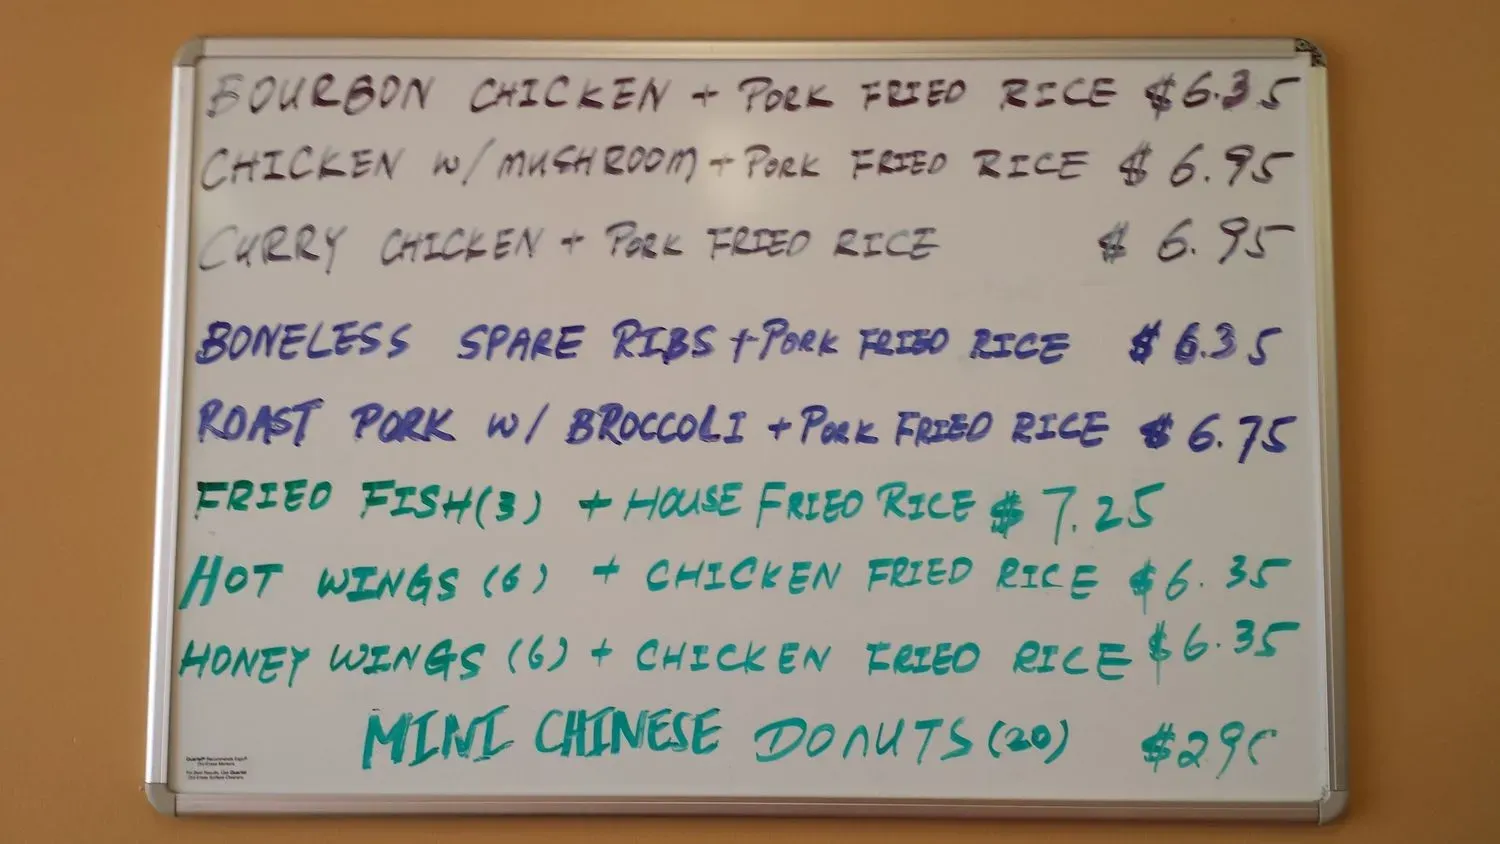 BOURBON CHICKEN + PORK FRIED RICE $6.35
CHICKEN W/MUSHROOM + PORK FRIED RICE $6.95
CURRY CHICKEN + PORK FRIED RICE $6.95
BONELESS SPARE RIBS + PORK FRIED RICE $6.35
ROAST PORK W/ BROCCOLI + PORK FRIED RICE $6.75
FRIED FISH(3) + HOUSE FRIED RICE $7.25
HOT WINGS (6) + CHICKEN FRIED RICE $6.35
HONEY WINGS (6) + CHICKEN FRIED RICE $6.35
MINI CHINESE DONUTS (20)
Quartet® Recommends Expo®
Dry-Erase Markers.
For Best Results, Use Quartet
Dry-Erase Surface Cleaners.